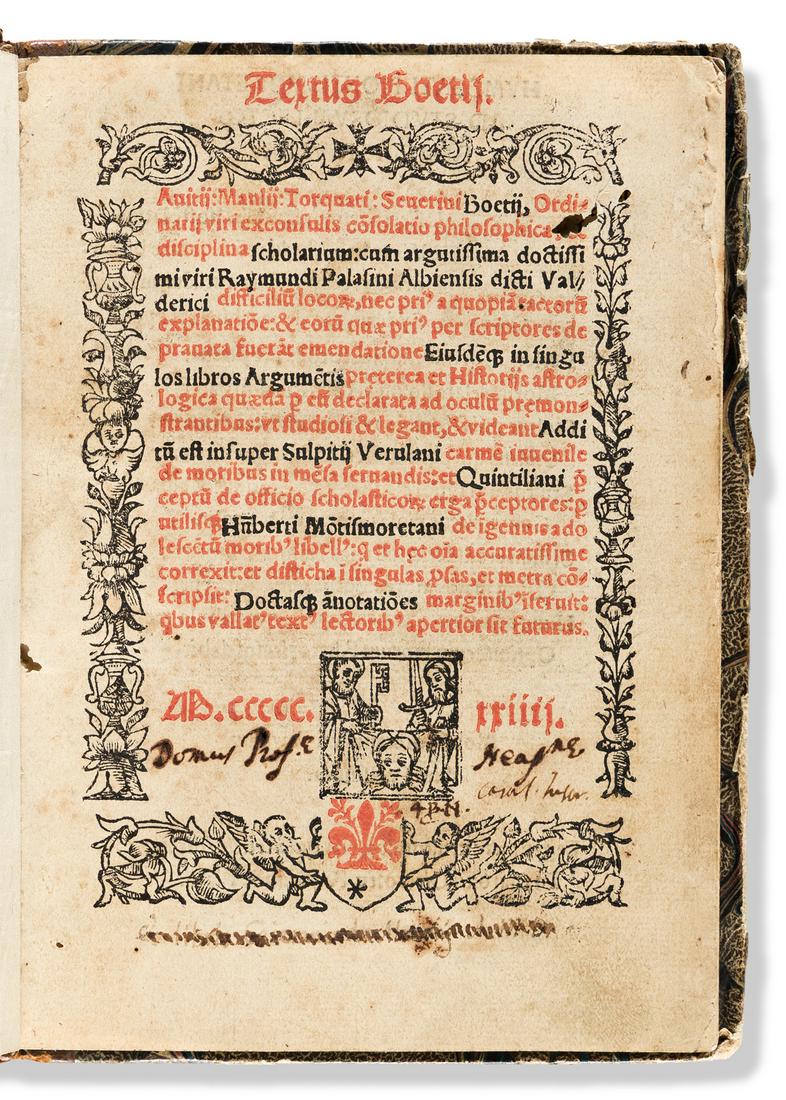 Textus Boetij.
Anitij: Manlij: Torquati: Seuerini Boetij, Ordi-
narij viri exconsulis cōsolatio philosophica
disciplina scholarium: cum argutissima doctissi
mi viri Raymundi Palasini Albiensis dicti Val//
derici difficiliū locoꝝ, nec pri⁹ a quopiā tactorū
explanatiōe: & eorū quæ pri⁹ per scriptores de
prauata fuerāt emendatione Eiusdēqꝫ in singu
los libros Argumētis pręterea et Historijs astro-
logica quædā ꝑ est declarata ad oculū pręmon-
strantibus: vt studiosi & legant, & videant Addi
tū est insuper Sulpitij Verulani carmē iuuenile
de moribus in mēsa seruandis: et Quintiliani p̄
ceptū de officio scholasticoꝝ erga p̄ceptores: ꝑ
utilisqꝫ Hūberti Mōtismoretani de īgenuis ado
lescētū morib⁹ libell⁹: q et hęc oīa accuratissime
correxit: et disticha ī singulas ꝓsas, et metra cō-
scripsit: Doctasqꝫ ānotatiōes marginib⁹ īseruit:
qbus vallat⁹ text⁹ lectorib⁹ apertior sit futurus.
M.ccccc. xxiiij.
Domus Prof.æ